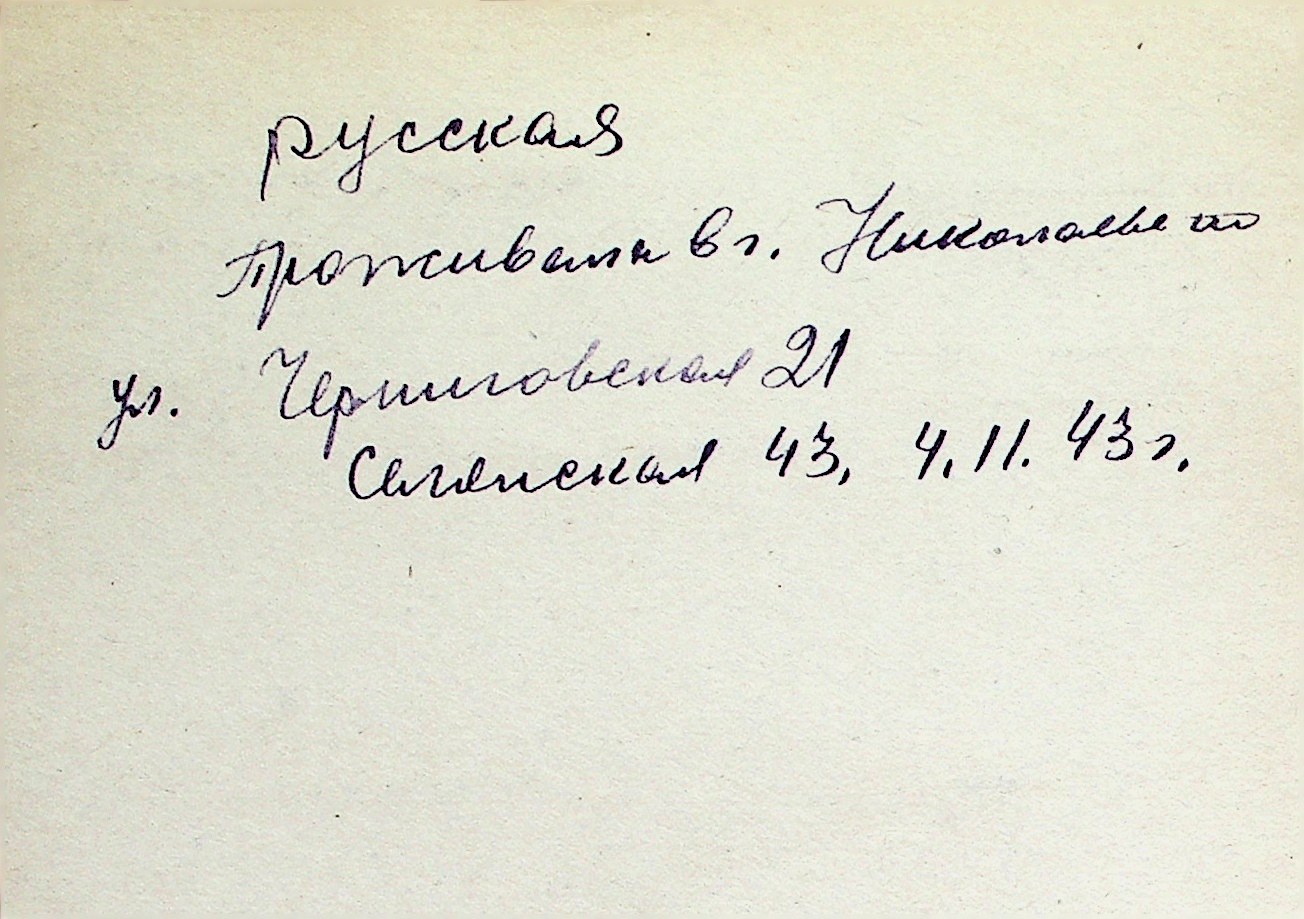 русская
проживала в г. Николаеве
ул. Черниговская 21
43, 4.11.43 г.